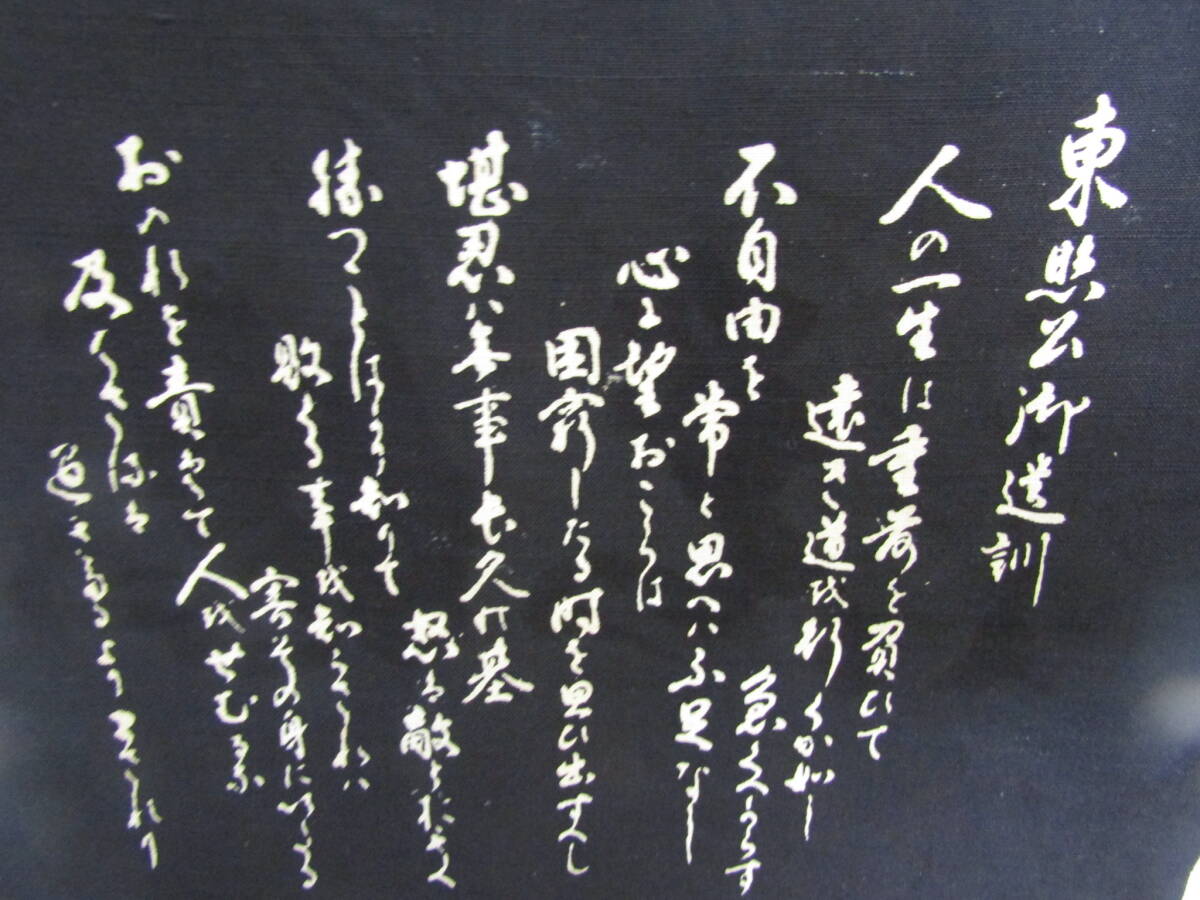 東照公御遺訓
人の一生は重荷を負いて
遠き道を行くか如し
急くへからす
不自由を
常と思へハ不足なし
心に望おこらは
困窮したる時を思ひ出すへし
堪忍ハ無事長久の基
怒は敵とおもへ
勝つことはかり知りて
敗くる事を知らされハ
害其の身にいたる
おのれを責めて
人をせむるな
及はさるは
過きたるよりまされり